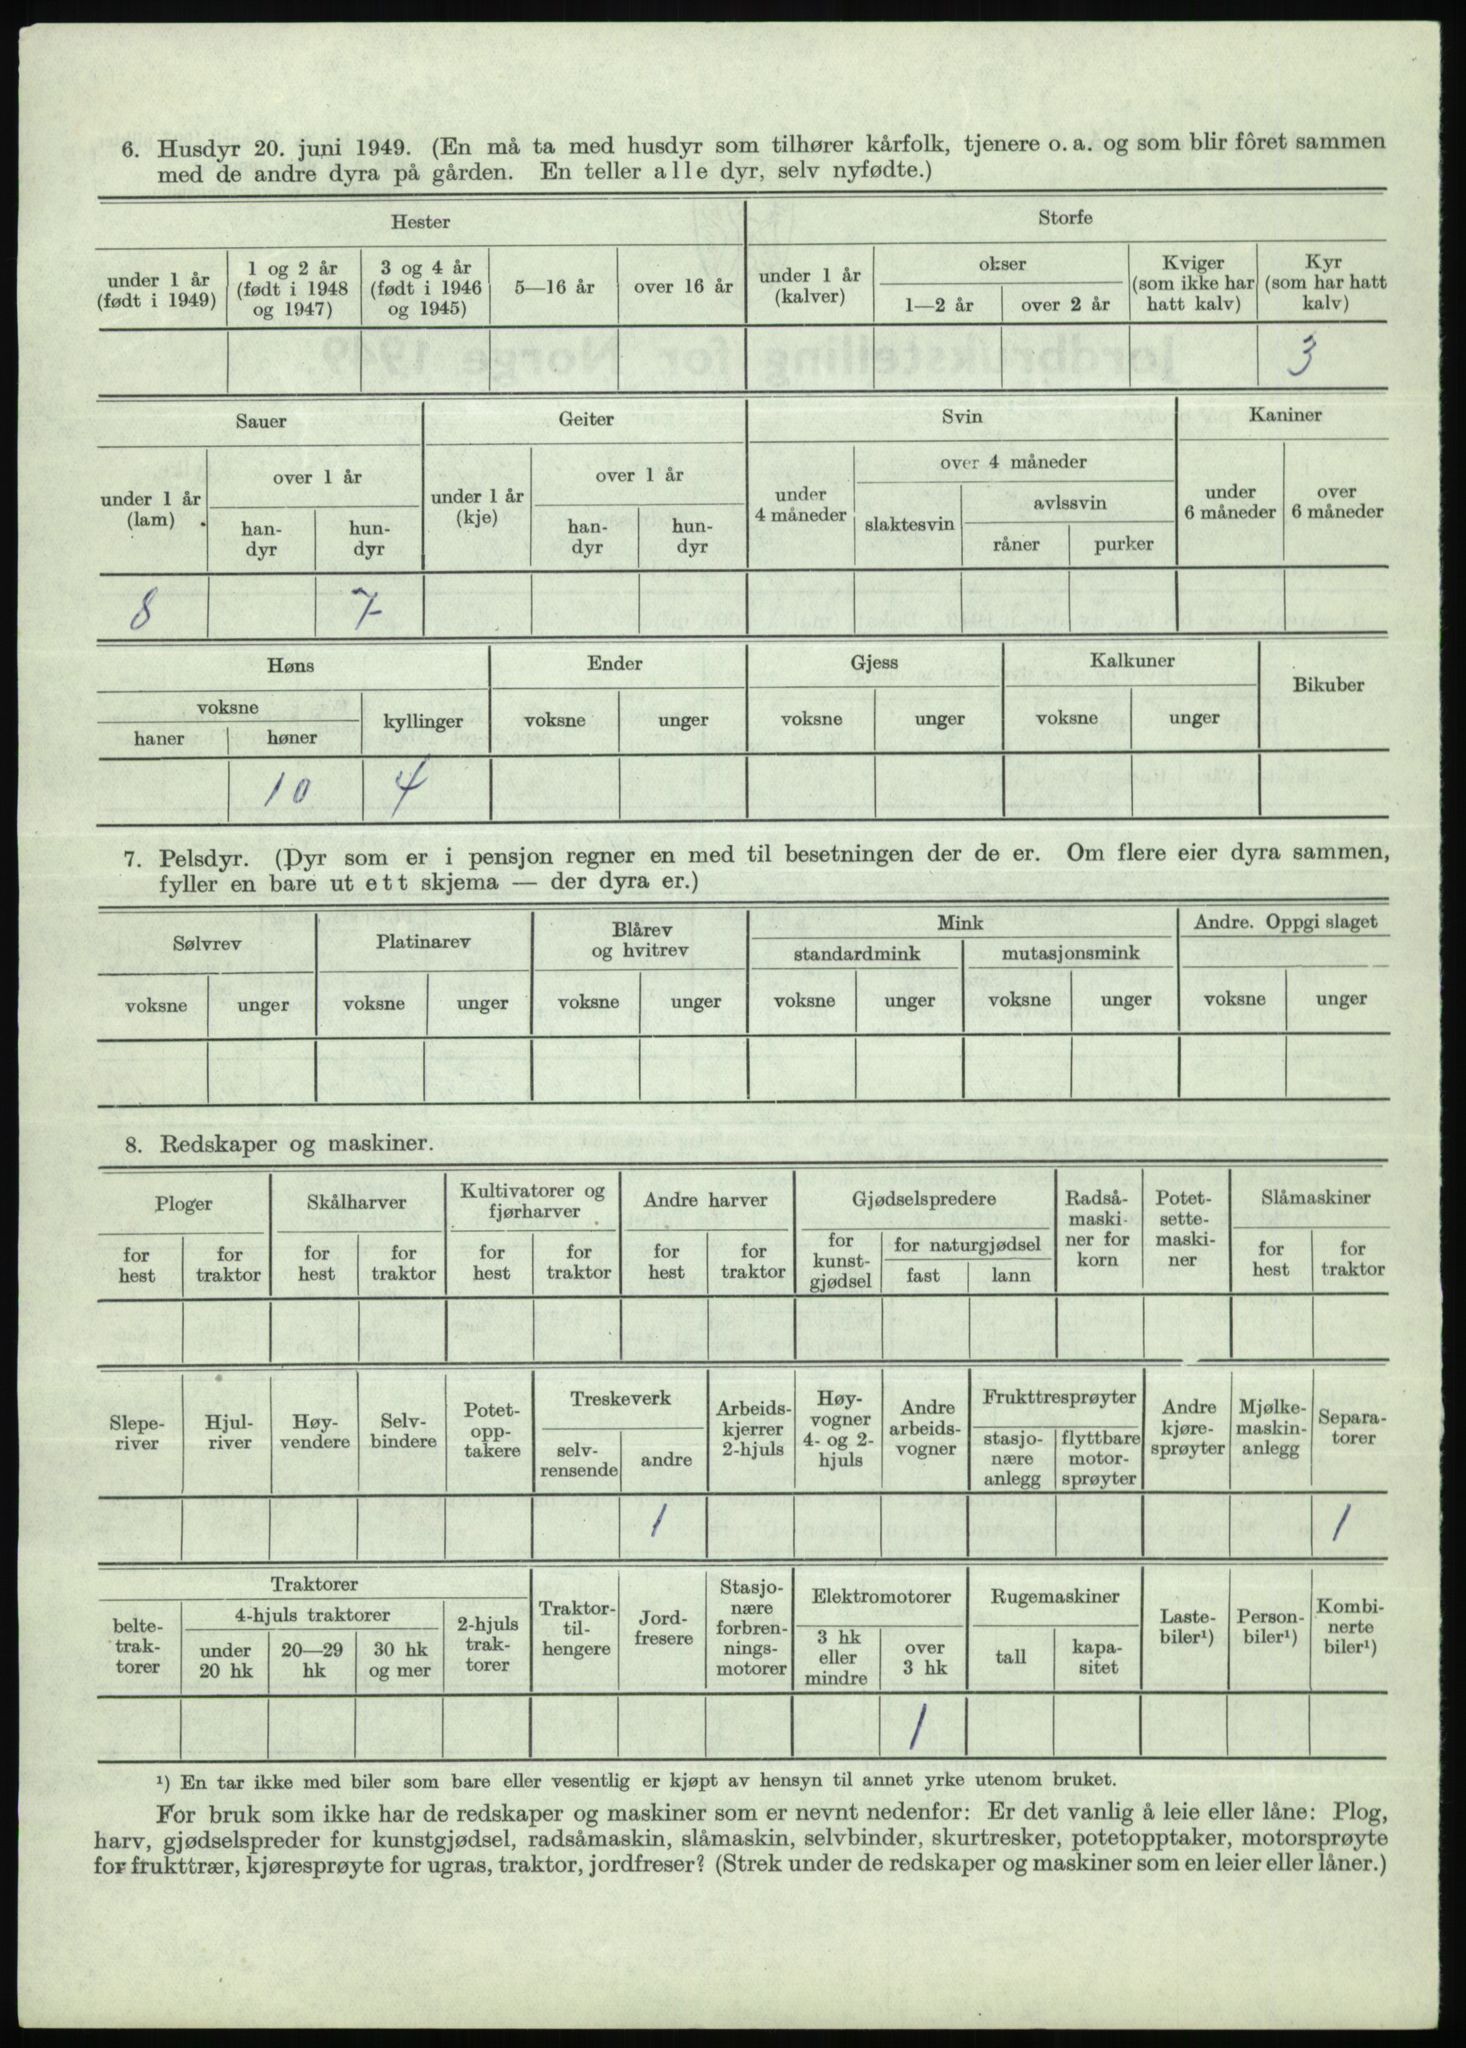 6. Husdyr 20. juni 1949. (En må ta med husdyr som tilhører kårfolk, tjenere o. a. og som blir fôret sammen
med de andre dyra på gården. En teller alle dyr, selv nyfødte.)
Hester Storfe
under 1 år (født i 1949) 1 og 2 år (født i 1948 og 1947) 3 og 4 år (født i 1946 og 1945) 5—16 år over 16 år under 1 år (kalver) okser 1—2 år over 2 år Kviger (som ikke har hatt kalv) Kyr (som har hatt kalv)
3
Sauer Geiter Svin Kaniner
under 1 år (lam) over 1 år handyr hundyr under 1 år (kje) over 1 år handyr hundyr under 4 måneder over 4 måneder slaktesvin avlssvin råner purker under 6 måneder over 6 måneder
8 7
Høns Ender Gjess Kalkuner Bikuber
voksne haner høner kyllinger voksne unger voksne unger voksne unger
10 4
7. Pelsdyr. (Dyr som er i pensjon regner en med til besetningen der de er. Om flere eier dyra sammen,
fyller en bare ut ett skjema — der dyra er.)
Sølvrev Platinarev Blårev og hvitrev Mink Andre. Oppgi slaget
standardmink mutasjonsmink
voksne unger voksne unger voksne unger voksne unger voksne unger voksne unger
8. Redskaper og maskiner.
Ploger Skålharver Kultivatorer og fjørharver Andre harver Gjødselspredere Radsåmaskiner for korn Potetsettemaskiner Slåmaskiner
for hest for traktor for hest for traktor for hest for traktor for hest for traktor for kunstgjødsel for naturgjødsel fast lann for hest for traktor
Sleperiver Hjulriver Høyvendere Selvbindere Potetopptakere Treskeverk selvrensende andre Arbeidskjerrer 2-hjuls Høyvogner 4- og 2-hjuls Andre arbeidsvogner Frukttresprøyter stasjonære anlegg flyttbare motorsprøyter Andre kjøresprøyter Mjølkemaskinanlegg Separatorer
1 1
Traktorer beltetraktorer 4-hjuls traktorer under 20 hk 20—29 hk 30 hk og mer 2-hjuls traktorer Traktortilhengere Jordfresere Stasjonære forbrenningsmotorer Elektromotorer 3 hk eller mindre over 3 hk Rugemaskiner tall kapasitet Lastebiler¹) Personbiler¹) Kombinerte biler¹)
1
¹) En tar ikke med biler som bare eller vesentlig er kjøpt av hensyn til annet yrke utenom bruket.
For bruk som ikke har de redskaper og maskiner som er nevnt nedenfor: Er det vanlig å leie eller låne: Plog,
harv, gjødselspreder for kunstgjødsel, radsåmaskin, slåmaskin, selvbinder, skurtresker, potetopptaker, motorsprøyte
for frukttrær, kjøresprøyte for ugras, traktor, jordfreser? (Strek under de redskaper og maskiner som en leier eller låner.)